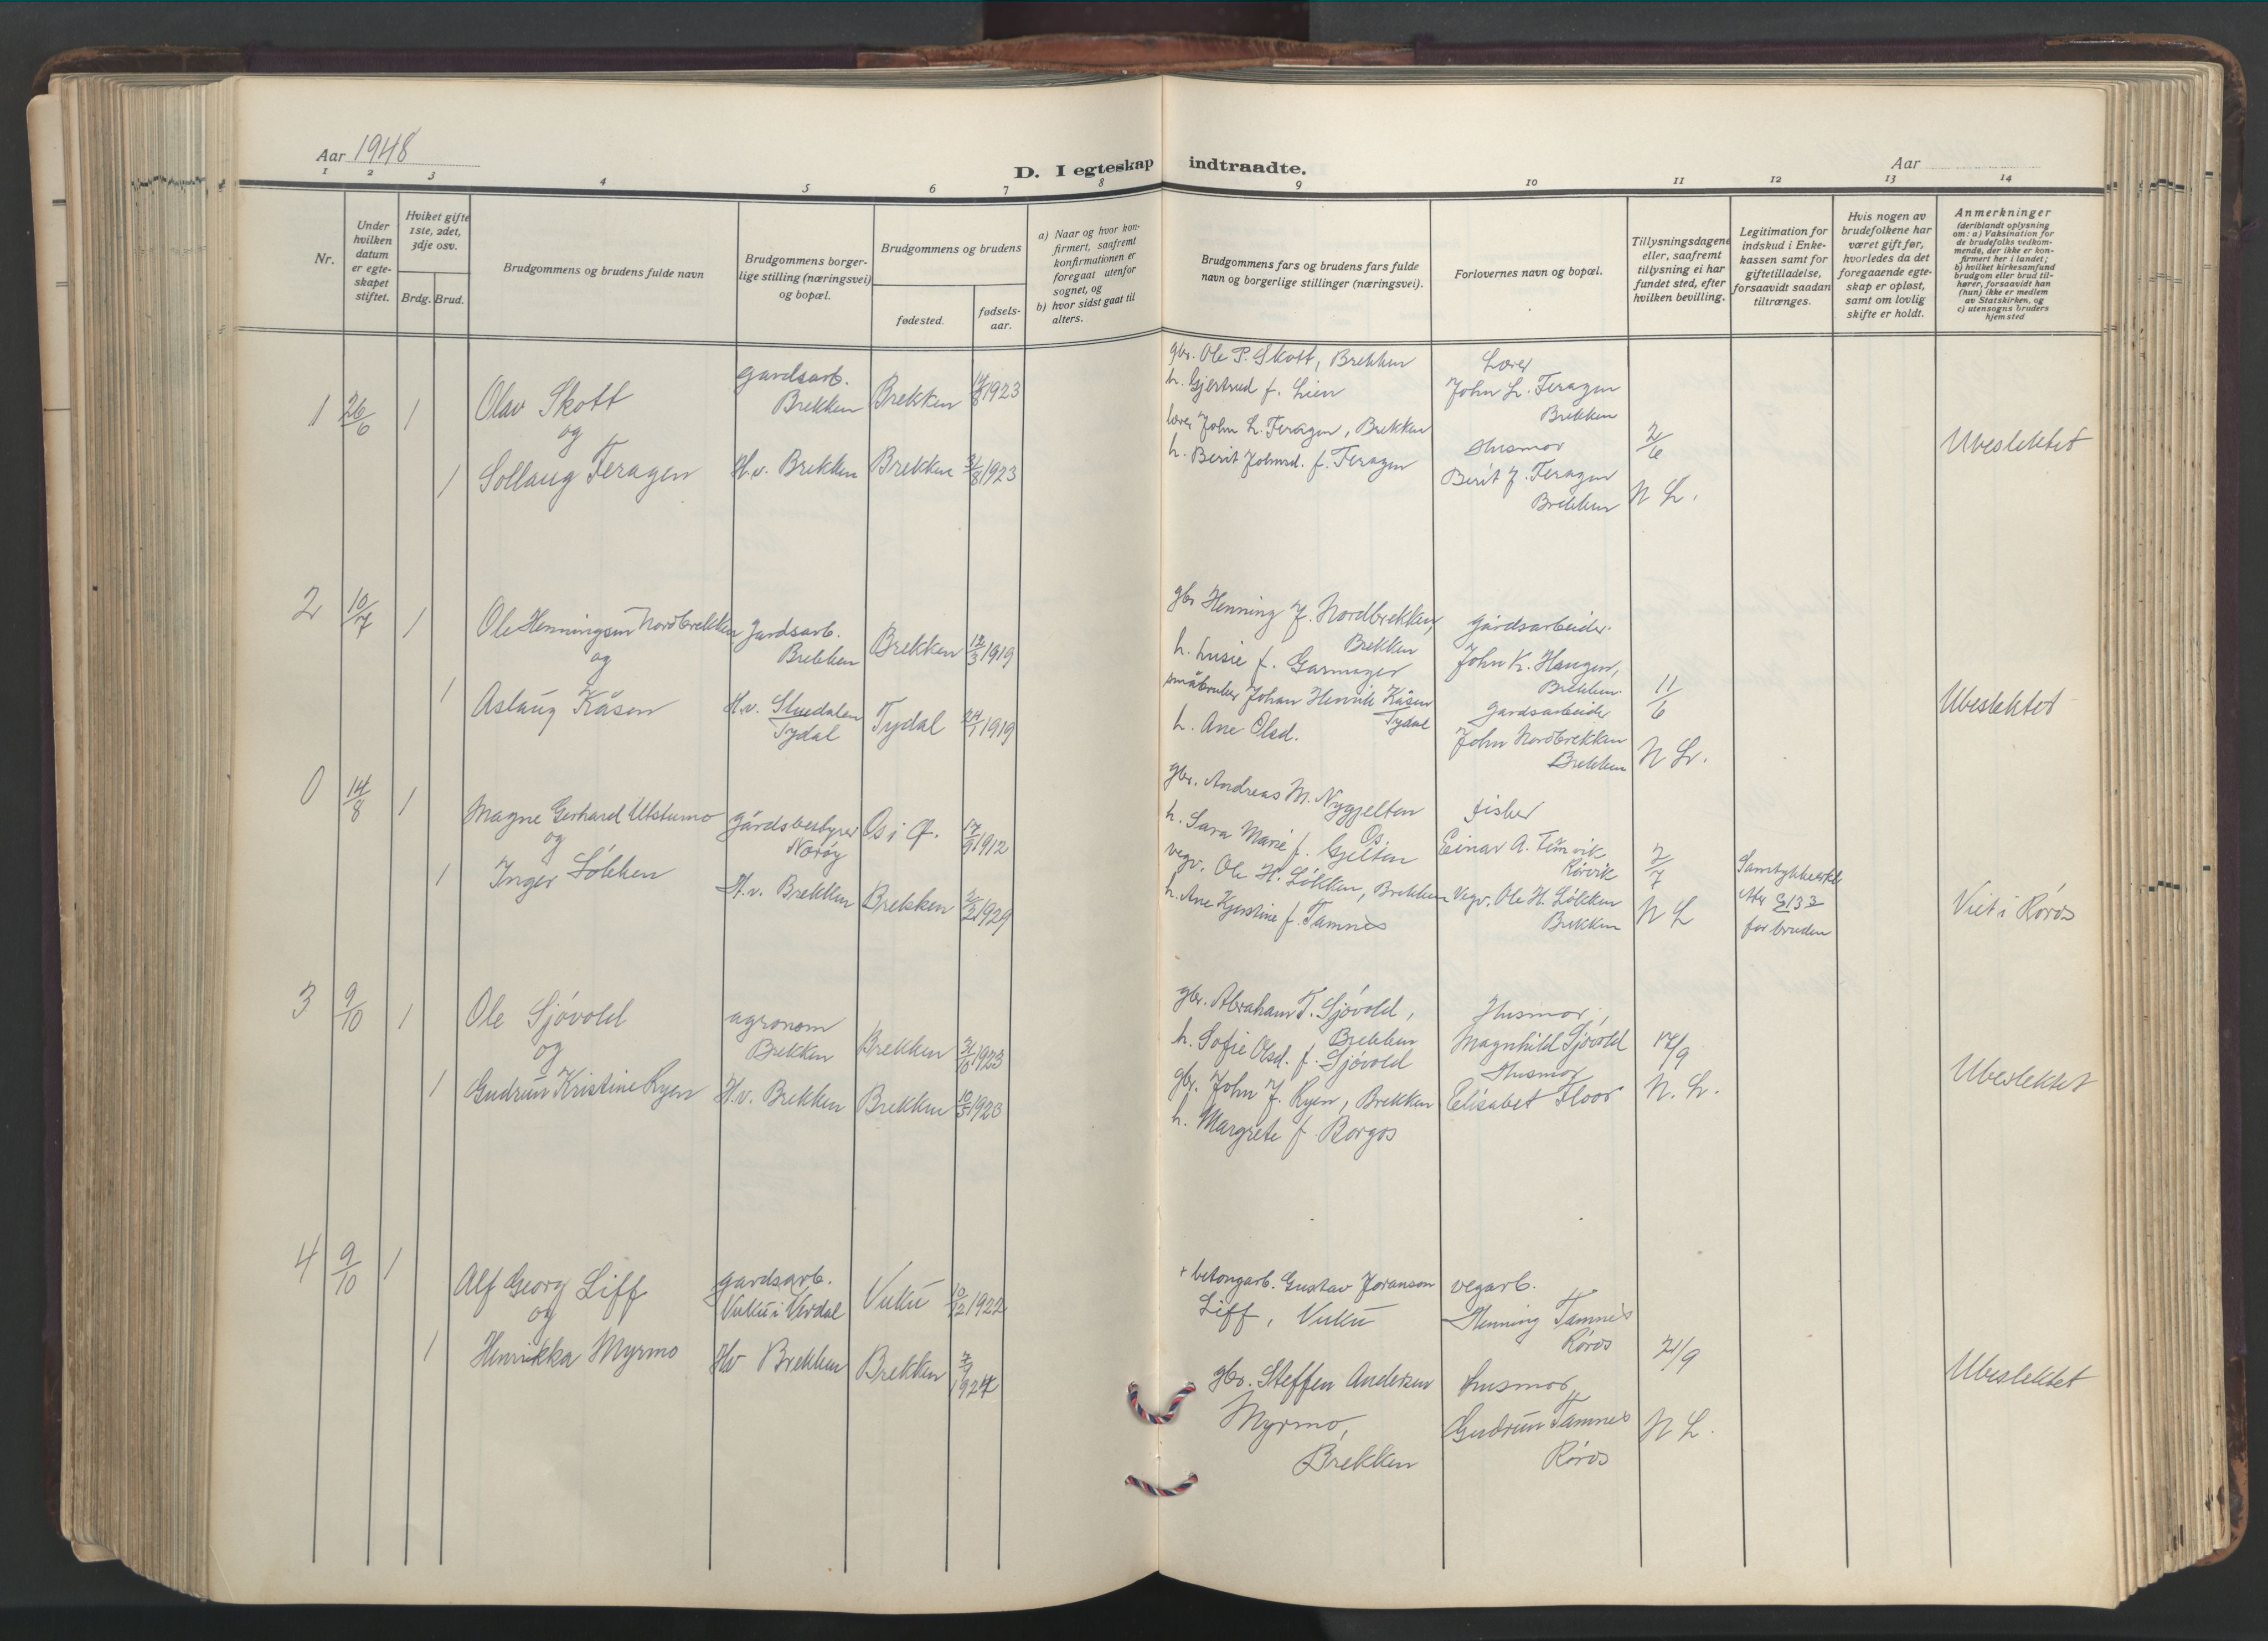 Aar 1948
D. I egteskap indtraadte.
Aar
1 2 3 4 5 6 7 8 9 10 11 12 13 14
Nr.
Under hvilken datum er egte-skapet stiftet.
Hviket gifte 1ste, 2det, 3dje osv.
Brdg. Brud.
Brudgommens og brudens fulde navn
Brudgommens borger-lige stilling (næringsvei) og bopæl.
Brudgommens og brudens
fødested.
fødsels-aar.
a) Naar og hvor kon-firmert, saafremt konfirmationen er foregaat utenfor sognet, og
b) hvor sidst gaat til alters.
Brudgommens fars og brudens fars fulde navn og borgerlige stillinger (næringsvei).
Forlovernes navn og bopæl.
Tillysningsdagene eller, saafremt tillysning ei har fundet sted, efter hvilken bevilling.
Legitimation for indskud i Enke-kassen samt for giftetilladelse, forsaavidt saadan tiltrænges.
Hvis nogen av brudefolkene har været gift før, hvorledes da det foregaaende egte-skap er opløst, samt om lovlig skifte er holdt.
Anmerkninger (deriblandt oplysning om: a) Vaksination for de brudefolks vedkom-mende, der ikke er kon-firmert her i landet; b) hvilket kirkesamfund brudgom eller brud til-hører, forsaavidt han (hun) ikke er medlem av Statskirken, og c) utensogns bruders hjemsted
1 26/6 1 Olav Skott
og
1 Sollaug Feragen
gardsarb.
Brekken
Brekken 1923
H.v. Brekken Brekken 31/8 1923
gbr. Ole P. Skott, Brekken
h. Gjertrud f. Lien
lærer John L. Feragen, Brekken
h. Berit Johnsd. f. Feragen
Lærer
John L. Feragen
Brekken
Husmor
Berit J. Feragen
Brekken
2/6
N L.
Ubeslektet
2 10/7 1 Ole Henningsen Nordbrekken
og
1 Aslaug Kåsen
Gardsarb.
Brekken
Brekken 12/3 1919
H.v. Stuedalen
Tydal
Tydal 24/1 1919
gbr Henning J. Nordbrekken,
Brekken
h. Lusie f. Garmager
småbruker Johan Henrik Kåsen
Tydal
h. Ane Olsd.
gårdsarbeider
John K. Haugen,
Brekken
gardsarbeider
John Nordbrekken
Brekken
11/6
N L.
Ubeslektet
0 14/8 1 Magne Gerhard Utstumo
og
1 Inger Løkken
gårdsbestyrer
Nærøy
Os i Ø. 17/9 1912
H.v. Brekken Brekken 2/2 1929
gbr. Andreas M. Nygjelten
Os.
h. Sara Marie f. Gjelten
vegv. Ole H. Løkken, Brekken
h. Ane Kjerstine f. Tamnes
fisker
Einar A.
Rørvik
Vegv. Ole H. Løkken
Brekken
2/7
N L
Samtykkeerkl.
for bruden
Viet i Røros
3 9/10 1 Ole Sjøvold
og
1 Gudrun Kristine Ryen
agronom
Brekken
Brekken 1923
H.v. Brekken Brekken
gbr. Abraham T. Sjøvold,
Brekken
h. Sofie Olsd. f. Sjøvold
gbr. John J. Ryen, Brekken
h. Margrete f. Borgos
Husmor,
Magnhild Sjøvold
Husmor
Elisabet Floor
14/9
N. L.
Ubeslektet
4 9/10 1 Alf Georg Liff
og
1 Henrikka Myrmo
gardsarb.
Vuku i Verdal
Vuku 10/12 1922
Hv Brekken Brekken 1924
+ betongarb. Gustav Joranson
Liff, Vuku
gbr. Steffen Andersen
Myrmo,
Brekken
vegarb.
Henning Tamnes
Røros
husmor
Gudrun Tamnes
Røros
21/9
N L.
Ubeslektet